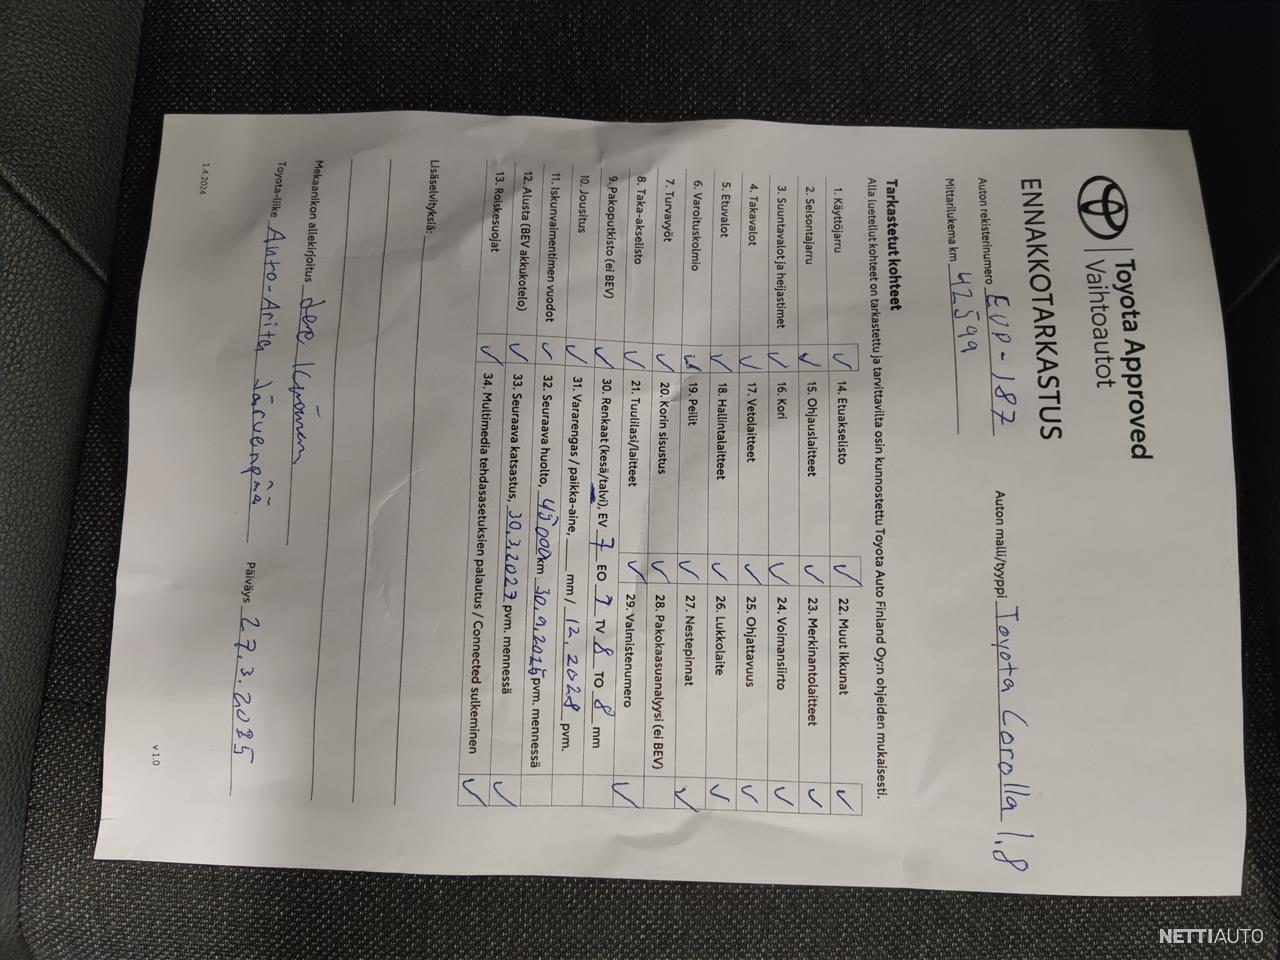 Toyota Approved
Vaihtoautot
ENNAKKOTARKASTUS
Auton rekisterinumero EVP-187 Auton malli/tyyppi Toyota Corolla 1.8
Mittarilukema km 42599
Tarkastetut kohteet
Alla luetellut kohteet on tarkastettu ja tarvittavilta osin kunnostettu Toyota Auto Finland Oy:n ohjeiden mukaisesti.
1. Käyttöjarru ✓ 14. Etuakselisto ✓ 22. Muut ikkunat ✓
2. Seisontajarru ✓ 15. Ohjauslaitteet ✓ 23. Merkinantolaitteet ✓
3. Suuntavalot ja heijastimet ✓ 16. Kori ✓ 24. Voimansiirto ✓
4. Takavalot ✓ 17. Vetolaitteet ✓ 25. Ohjattavuus ✓
5. Etuvalot ✓ 18. Hallintalaitteet ✓ 26. Lukkolaite ✓
6. Varoituskolmio ✓ 19. Peilit ✓ 27. Nestepinnat ✓
7. Turvavyöt ✓ 20. Korin sisustus ✓ 28. Pakokaasuanalyysi (ei BEV)
8. Taka-akselisto ✓ 21. Tuulilasi/laitteet ✓ 29. Valmistenumero ✓
9. Pakoputkisto (ei BEV) ✓ 30. Renkaat (kesä/talvi), EV 7 EO 7 TV 8 TO 8 mm
10. Jousitus ✓ 31. Vararengas / paikka-aine, mm / 12.2028 pvm.
11. Iskunvaimentimen vuodot ✓ 32. Seuraava huolto, 45000 km 30.9.2025 pvm. mennessä
12. Alusta (BEV akkukotelo) ✓ 33. Seuraava katsastus, 30.3.2027 pvm. mennessä ✓
13. Roiskesuojat ✓ 34. Multimedia tehdasasetuksien palautus / Connected sulkeminen ✓
Lisäselvityksiä:
Mekaanikon allekirjoitus Jere
Toyota-liike Auto-Arita Järvenpää Päiväys 27.3.2025
1.4.2024 v 1.0
NETTIAUTO